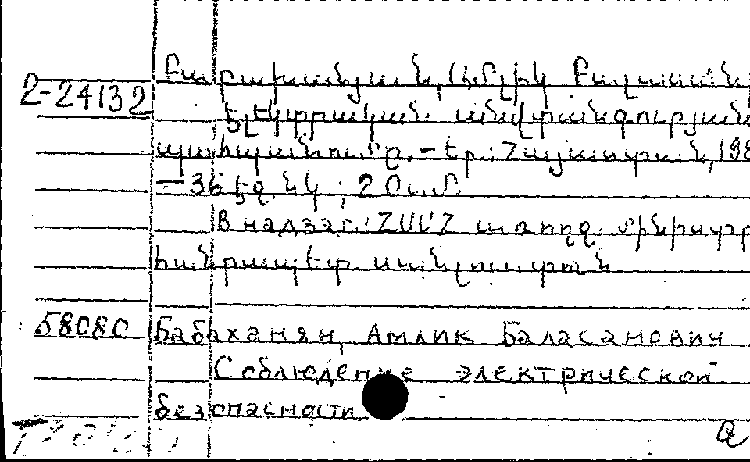 2-24132 Բաբախանյան, Ամլիկ Բաղասանի
Էլեկտրական անվտանգության
պահպանումը. – Եր.: Հայաստան, 198
– 36 էջ նկ ; 20 սմ
В надзаг.: ՀՍՍՀ առողջ. մինիստր
հանրապետ.
58080 Бабаханян, Амлик Баласанович
Соблюдение электрической
безопасности